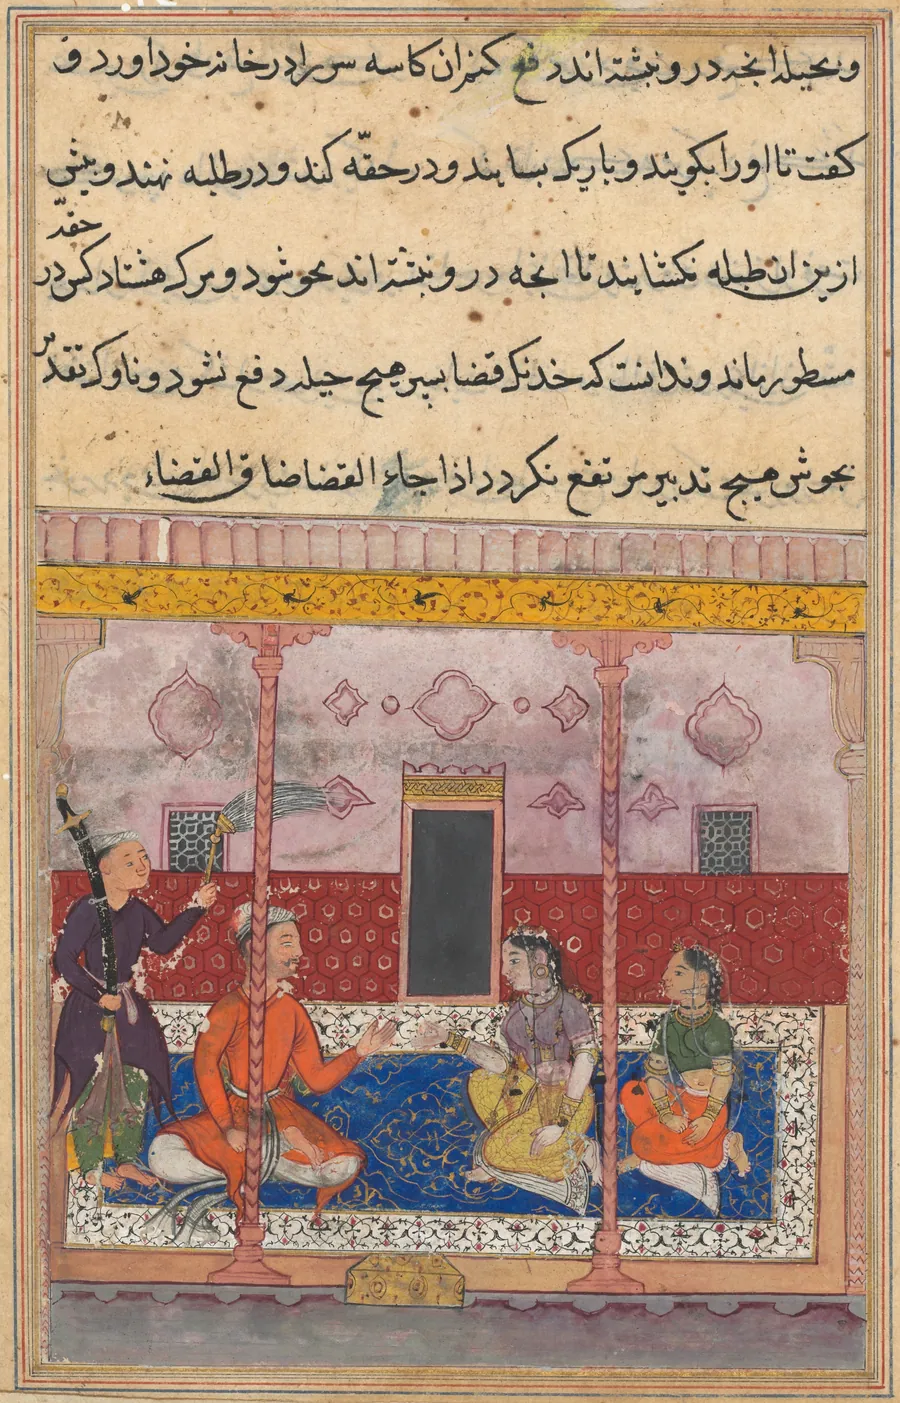 و بحیله انجه درو نبشته اند دفع کنم ان کاسه سر را در خانه خود اورد و
کفت تا اورا بکویند و باریک بسایند و در حقّه کند و در طلبه نهند و بیش
ازین ان طبله نکشایند تا انجه درو نبشته اند محو شود و مرک هشتاد کس در
حقّه
مسطور ماند و ندانست که خدنک قضا بسپر هیچ حیله دفع نشود و ناوک تقدیر
بجوشن هیچ تدبیر مرتفع نکردد اذا جاء القضا ضاق القضاء